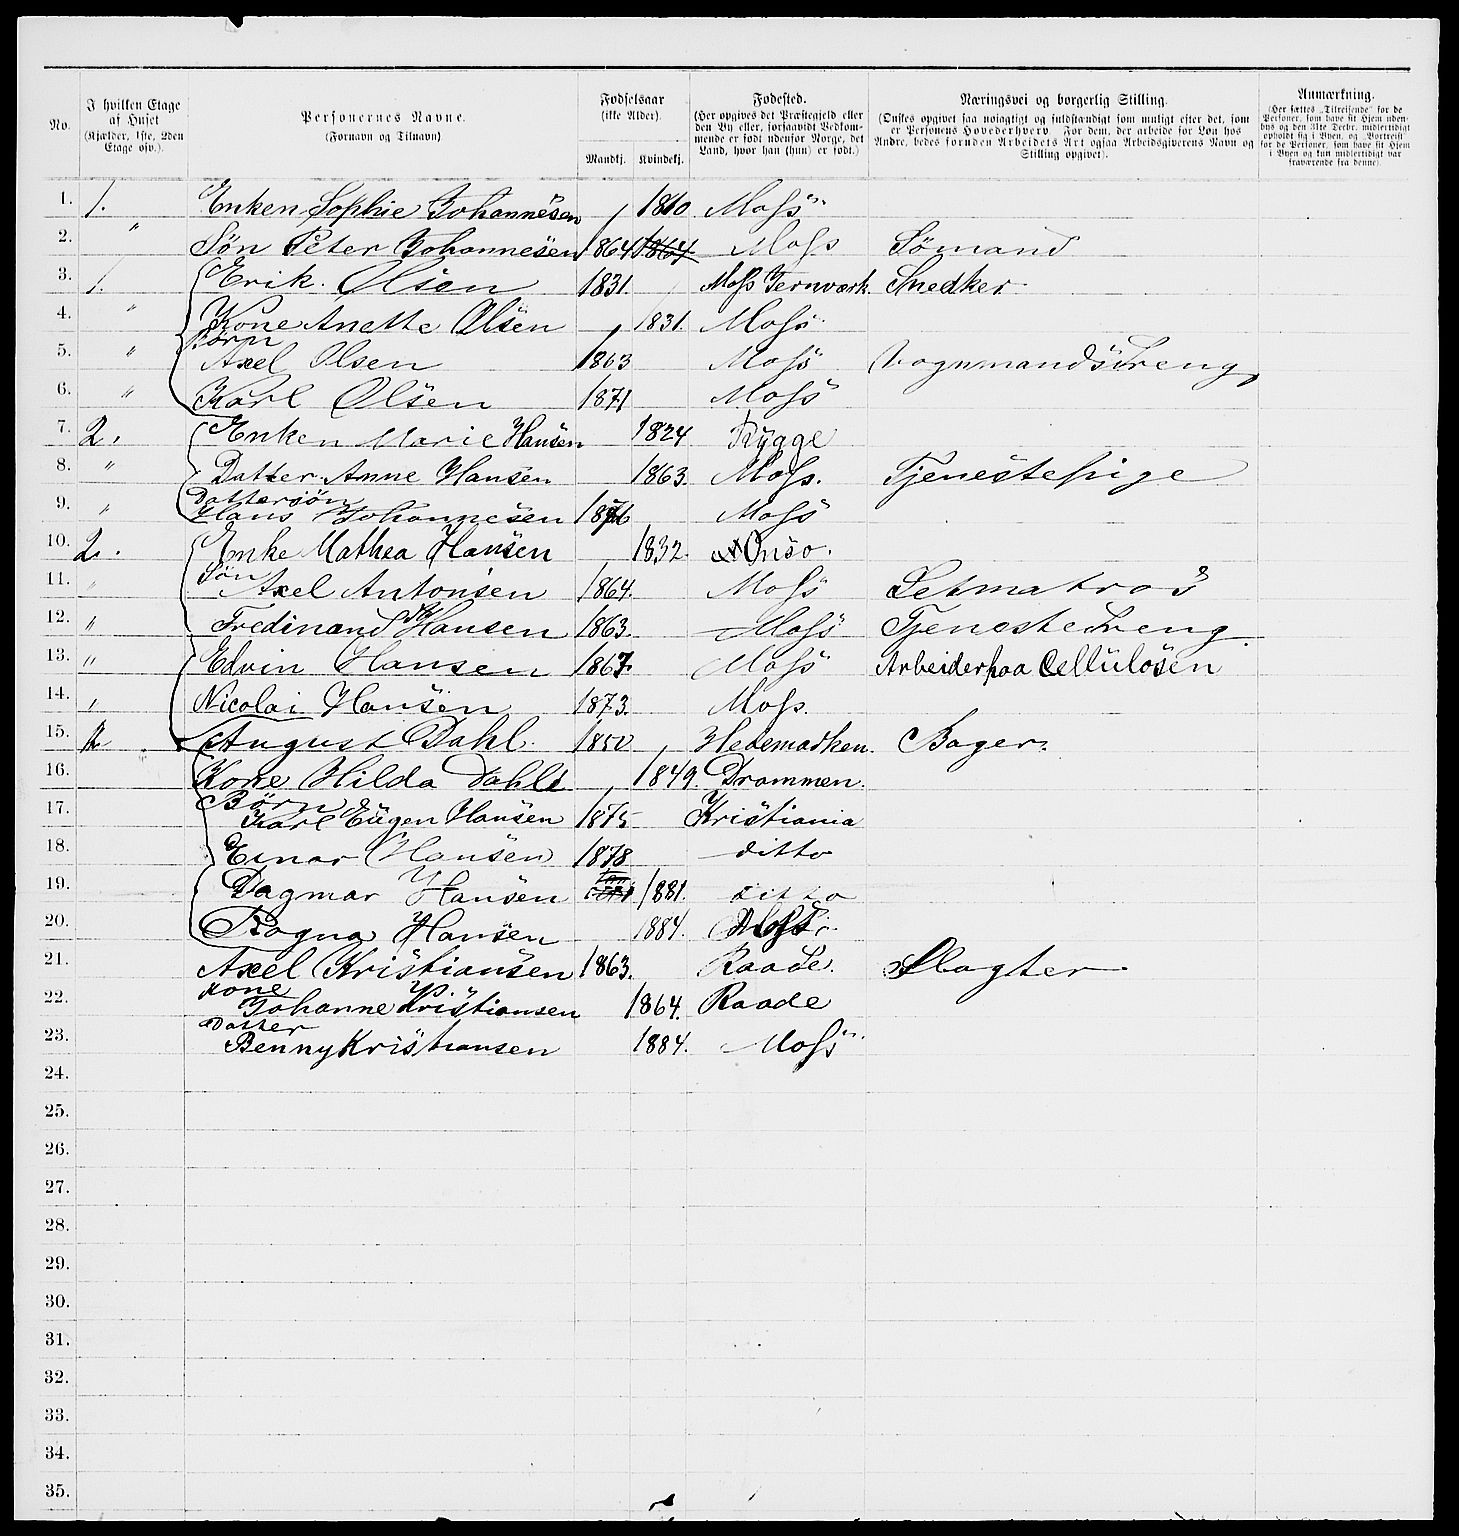 No.
I hvilken Etage af Huset (Kjælder, 1ste, 2den Etage osv.).
Personernes Navne. (Fornavn og Tilnavn).
Fødselsaar (ikke Alder).
Mandkj. Kvindekj.
Fødested. (Her opgives det Præstegjeld eller den By eller, forsaavidt Vedkommende er født udenfor Norge, det Land, hvor han (hun) er født.)
Næringsvei og borgerlig Stilling. (Ønskes opgivet saa nøiagtigt og fuldstændigt som muligt efter det, som er Personens Hovederhverv. For dem, der arbeide for Løn hos Andre, bedes foruden Arbeidets Art ogsaa Arbeidsgiverens Navn og Stilling opgivet).
Anmærkning. (Her sættes „Tilreisende“ for de Personer, som have sit Hjem udenbys og den 31te Decbr. midlertidigt opholdt sig i Byen, og „Bortreist“ for de Personer, som have sit Hjem i Byen og kun midlertidigt var fraværende fra denne).
1. 1. Enken Sophie Johannesen 1810 Moss
2. " Søn Peter Johannesen 1864 1864 Moss Sømand
3. 1. Erik Olsen 1831. Moss Jernværk. Snedker
4. " Kone Anette Olsen 1831. Moss
Børn
5. " Axel Olsen 1863 Moss Vognmandsdreng
6. " Karl Olsen 1871 Moss
7. 2. Enken Marie Hansen 1824 Rygge
8. " Datter Anne Hansen 1863. Moss. Tjenestepige
Dattersøn
9. " Hans Johannesen 1876 Moss
10. 2. Enke Mathea Hansen 1832. Onsø.
11. " Søn Axel Antonsen 1864. Moss Letmatros
12. " Fredinand Hansen 1863. Moss Tjenestedreng
13. " Edvin Hansen 1867. Moss Arbeider paa Cellulosen
14. " Nicolai Hansen 1873. Moss.
15. 2 August Dahl. 1850 Hedemarken. Bager.
16. Kone Hilda Dahl 1849. Drammen.
Børn
17. Karl Eugen Hansen 1875 Kristiania
18. Einar Hansen 1878 ditto
19. Dagmar Hansen 1881. ditto
20. Ragna Hansen 1884. Moss
21. Axel Kristiansen 1863. Raade. Slagter
Kone
22. Johanne Kristiansen 1864. Raade
Datter
23. Benny Kristiansen 1884. Moss
24.
25.
26.
27.
28.
29.
30.
31.
32.
33.
34.
35.